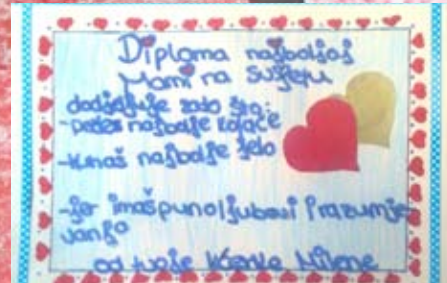 Diploma najboljoj
Mami na svijetu
dodjeljuje zato što:
-pečeš najbolje kolače
-kuhaš najbolje jelo
-jer imaš puno ljubavi i razumije
vanja
od tvoje kćerke Milene